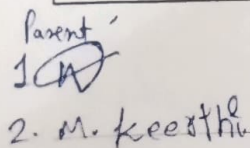 Parent
1
2. M. Keerthi